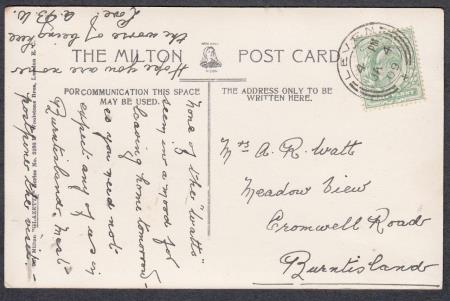 THE MILTON POST CARD
FOR COMMUNICATION THIS SPACE
MAY BE USED.
THE ADDRESS ONLY TO BE
WRITTEN HERE.
LEVEN
JY 4
09
Mrs A. R. Watt
Meadow View
Cromwell Road
Burntisland
"None of the "Watts"
seem in a mood for
leaving home tomorrow
so you need not
expect any of us in
Burntisland. Must
postpone the visit.
Hope you are none
the worse of being here
Love A.B.W.
Milton "GLAZETTE" Series No.
Bros., London E.C.